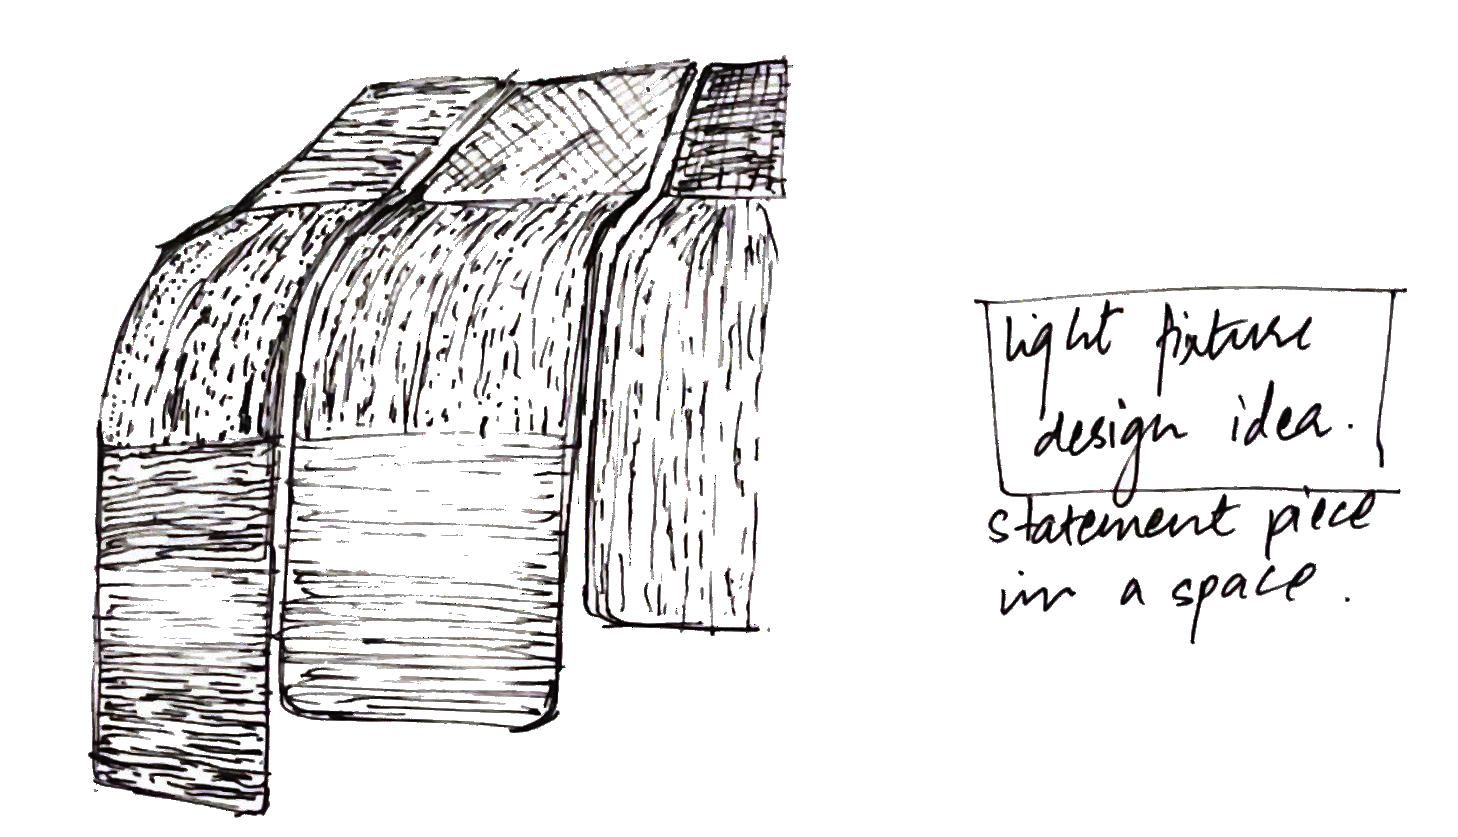 light fixture
design idea.
statement piece
in a space.